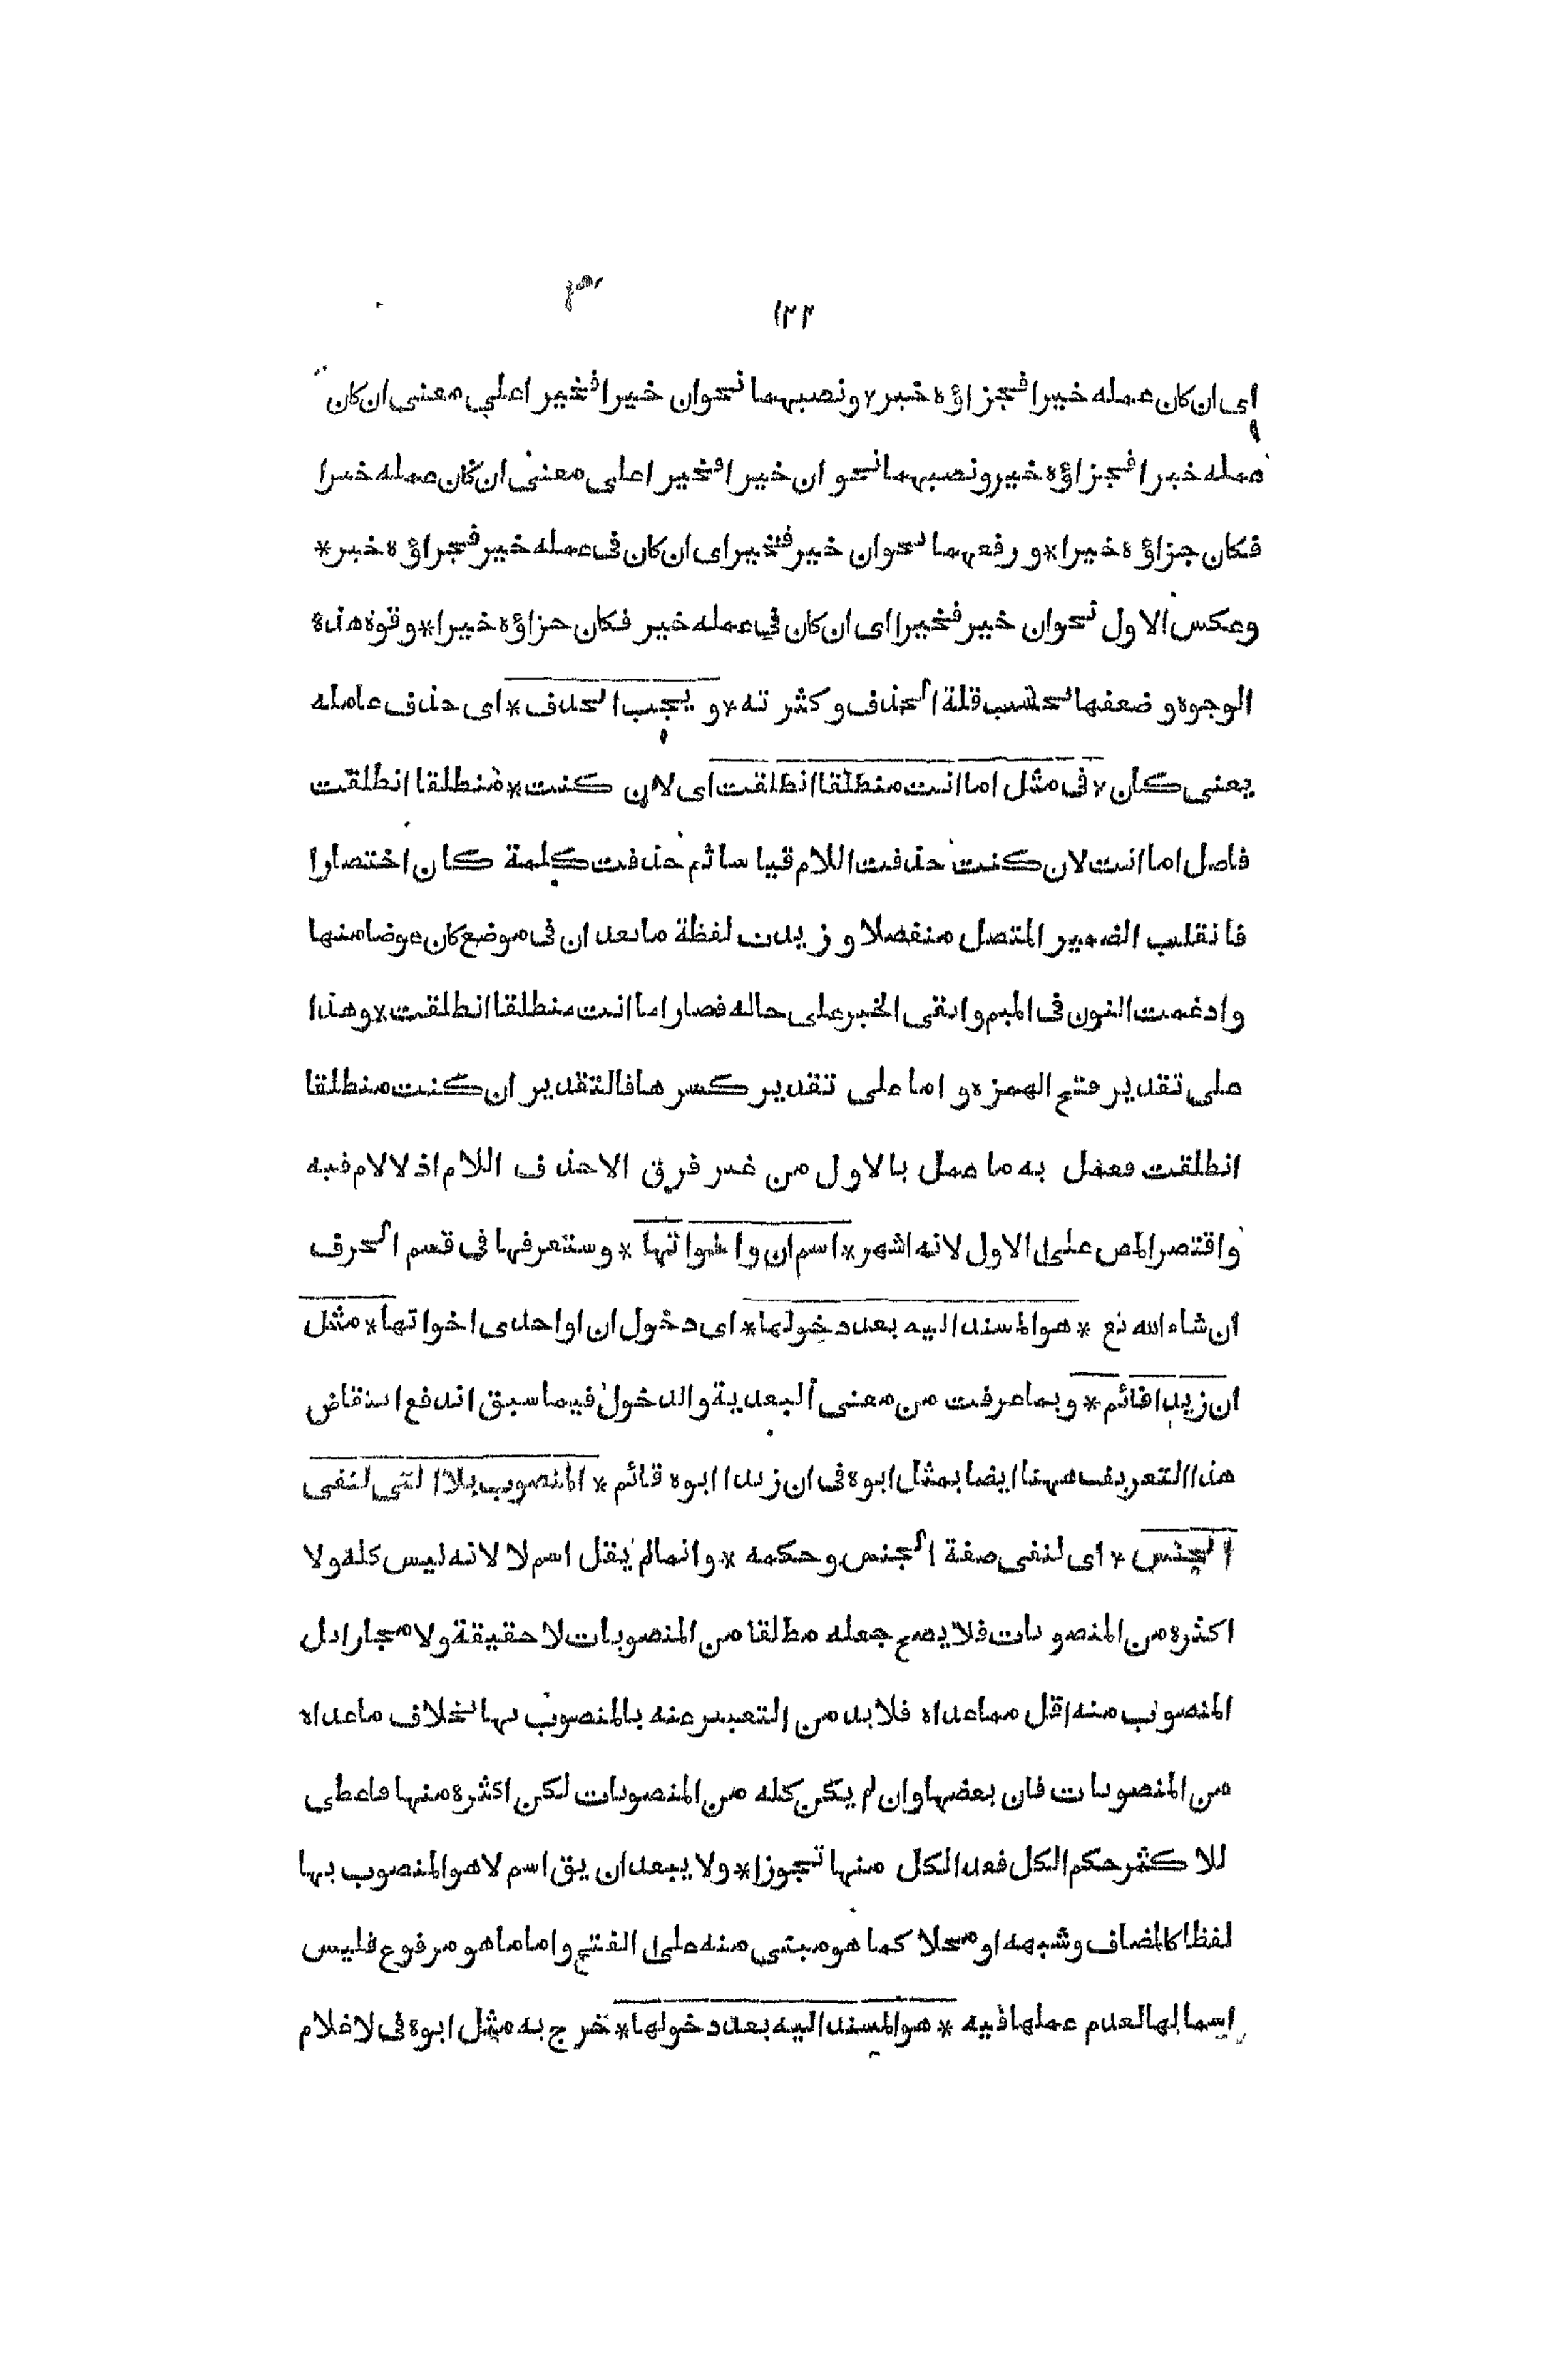 ١٢٢
اى ان كان عمله خيرا فجزاؤه خير * ونصبهما نحو ان خيرا فخيرا على معنى ان كان
عمله خيرا فجزاؤه خير ونصبهما نحو ان خيرا فخيرا على معنى ان كان عمله خيرا
فكان جزاؤه خيرا * ورفعهما نحو ان خير فخير اى ان كان فى عمله خير فجزاؤه خير *
وعكس الاول نحو ان خير فخيرا اى ان كان في عمله خير فكان جزاؤه خيرا * وقوة هذه
الوجوه وضعفها بحسب قلة الحذف وكثرته * ويجب الحذف * اى حذف عامله
يعنى كان * فى مثل اما انت منطلقا انطلقت اى لان كنت * منطلقا انطلقت
فاصل اما انت لان كنت حذفت اللام قياسا ثم حذفت كلمة كان اختصارا
فانقلب الضمير المتصل منفصلا وزيدت لفظة ما بعد ان فى موضع كان عوضا منها
وادغمت النون فى الميم وابقى الخبر على حاله فصار اما انت منطلقا انطلقت * وهذا
على تقدير فتح الهمزه واما على تقدير كسرها فالتقدير ان كنت منطلقا
انطلقت فعمل به ما عمل بالاول من غير فرق الا حذف اللام اذ لا لام فيه
واقتصر المص على الاول لانه اشهر * اسم ان واخواتها * وستعرفها فى قسم الحرف
ان شاء الله تع * هو المسند اليه بعد دخولها * اى دخول ان او احدى اخواتها * مثل
ان زيدا قائم * وبما عرفت من معنى البعدية والدخول فيما سبق اندفع انتقاض
هذا التعريف ههنا ايضا بمثل ابوه فى ان زيدا ابوه قائم * المنصوب بلا التى لنفى
الجنس * اى لنفى صفة الجنس وحكمه * وانما لم يقل اسم لا لانه ليس كله ولا
اكثره من المنصوبات فلا يصح جعله مطلقا من المنصوبات لا حقيقة ولا مجازا بل
المنصوب منه اقل مما عداه فلا بد من التعبير عنه بالمنصوب بها بخلاف ما عداه
من المنصوبات فان بعضها وان لم يكن كله من المنصوبات لكن اكثره منها فاعطى
للاكثر حكم الكل فعد الكل منها تجوزا * ولا يبعد ان يق اسم لا هو المنصوب بها
لفظا كالمضاف وشبهه او محلا كما هو مبنى منه على الفتح واما ما هو مرفوع فليس
اسما لها لعدم عملها فيه * هو المسند اليه بعد دخولها * خرج به مثل ابوه فى لا غلام